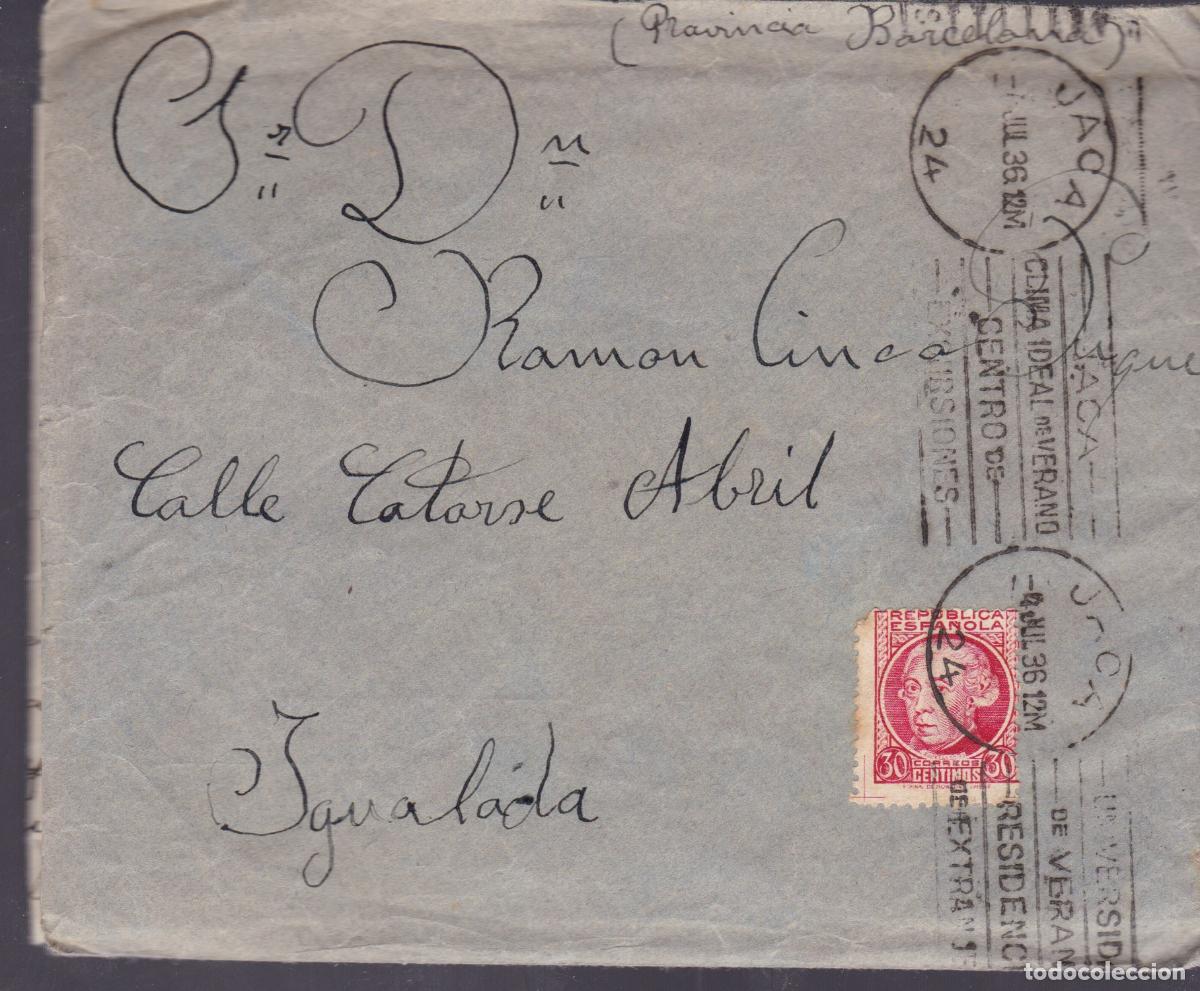 (Provincia Barcelona)
Sr. Dn
Ramon Cinca
Calle Catorse Abril
Igualáda
JACA
-4 JUL 36. 12M
24
JACA
CLIMA IDEAL DE VERANO
CENTRO DE
EXCURSIONES
REPUBLICA
ESPAÑOLA
30 CORREOS 30
CENTIMOS
-4 JUL 36 12M
24
UNIVERSID
DE VERAN
RESIDENC
DE EXTRANJE
todocoleccion